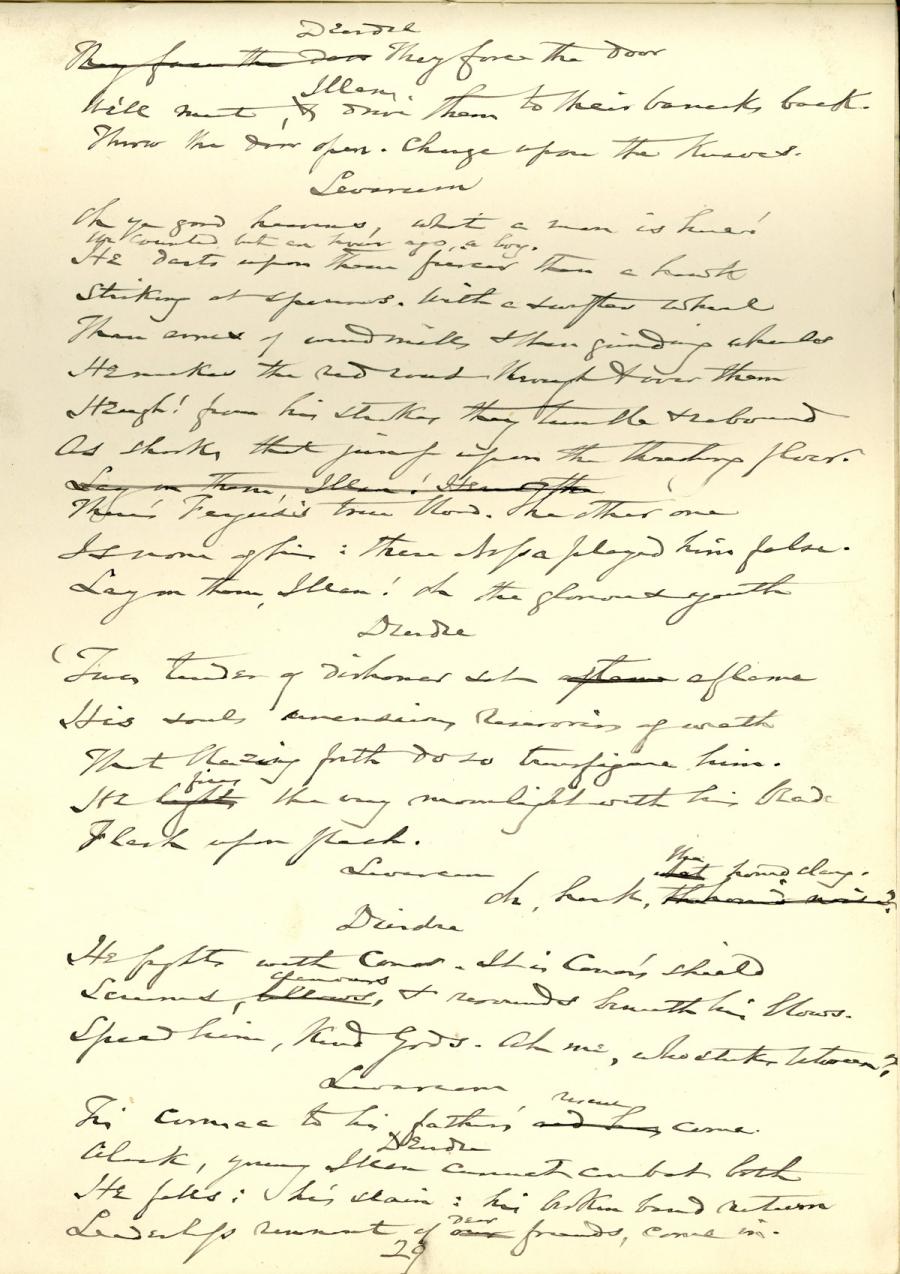 Dierdre
They force the door They force the door
Illan
We'll meet, & drive them to their barracks back.
Throw the door open. Charge upon the Knaves.
Levarcum
Oh ye good heavens, what a man is here!
We counted but an hour ago, a boy.
He darts upon them fiercer than a hawk
Striking at sparrows. With a swifter wheel
Than arms of windmills & than grinding wheels
He makes the red road through & over them
Heugh! from his strokes they tumble & rebound
As sharks that jump upon the threshing floor.
Lay on them, Illan!
There's Fergus's true blood. The other one
Is none of his: there Nessa played him false.
Lay on them, Illan! Oh the glorious youth
Dierdre
('Twas tinder of dishonor set aflame aflame
His soul's unending reservoirs of wrath
That blazing forth do so transfigure him.
fires
He lights the very moonlight with his blade
Flash upon flash.
Levarcum
the
Oh, hark, that hound clang.
Dierdre
He fights with Conor. It is Conor's shield
clamours
Screams, bellows, & resounds beneath his blows.
Speed him, Kind Gods. Ah me, who strikes between?
Levarcum
rescue
'Tis Cormac to his father's come.
Dierdre
Alack, young Illan cannot combat both
He falls: he's slain: his broken band return
dear
Leaderless remnant of our friends, come in.
29